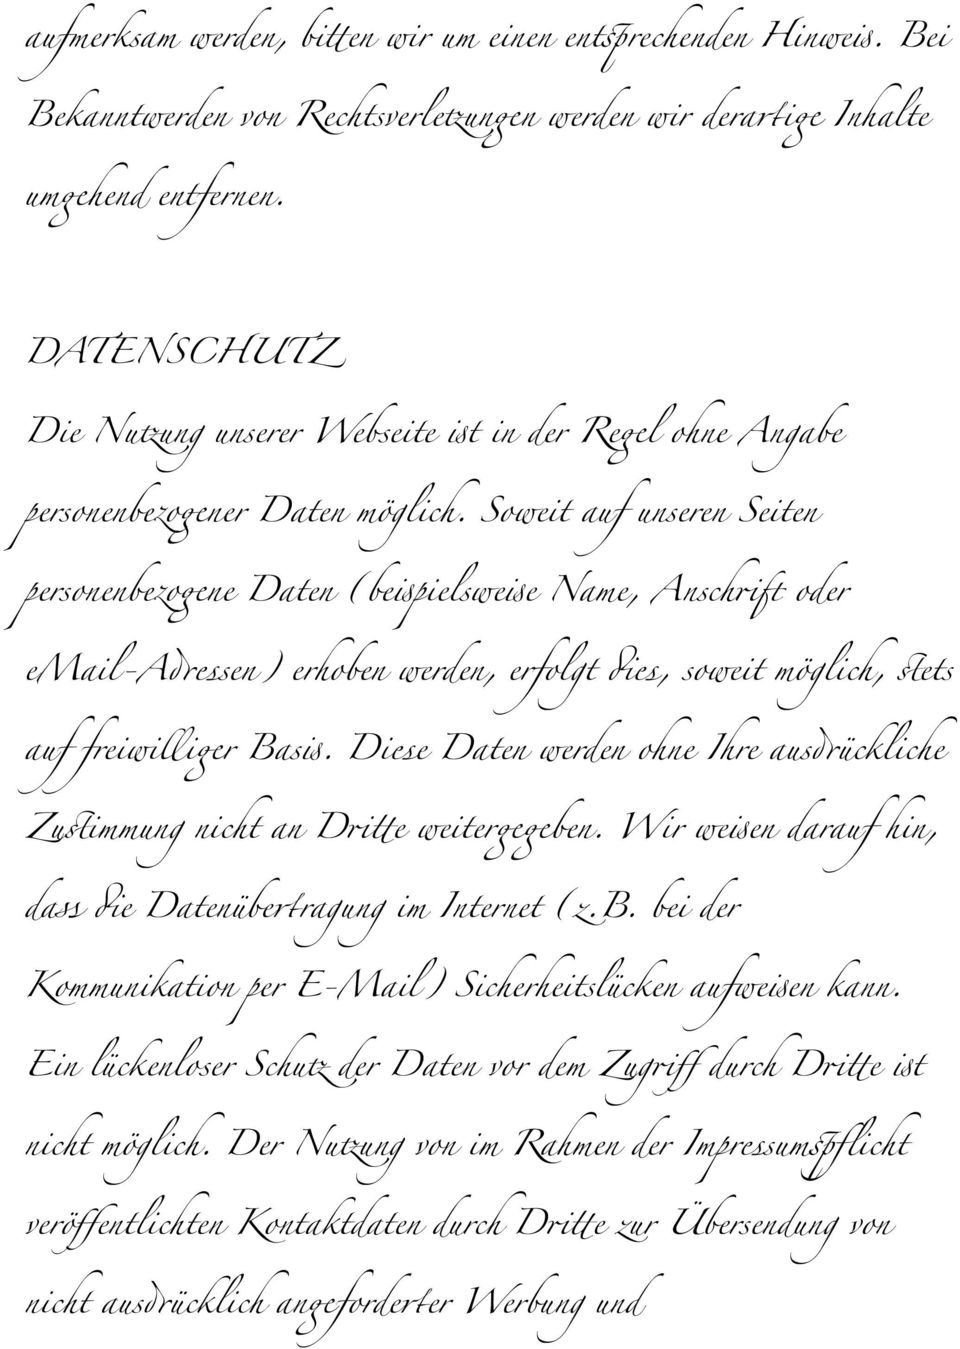 aufmerksam werden, bitten wir um einen entsprechenden Hinweis. Bei
Bekanntwerden von Rechtsverletzungen werden wir derartige Inhalte
umgehend entfernen.
DATENSCHUTZ
Die Nutzung unserer Webseite ist in der Regel ohne Angabe
personenbezogener Daten möglich. Soweit auf unseren Seiten
personenbezogene Daten (beispielsweise Name, Anschrift oder
eMail-Adressen) erhoben werden, erfolgt dies, soweit möglich, stets
auf freiwilliger Basis. Diese Daten werden ohne Ihre ausdrückliche
Zustimmung nicht an Dritte weitergegeben. Wir weisen darauf hin,
dass die Datenübertragung im Internet (z.B. bei der
Kommunikation per E-Mail) Sicherheitslücken aufweisen kann.
Ein lückenloser Schutz der Daten vor dem Zugriff durch Dritte ist
nicht möglich. Der Nutzung von im Rahmen der Impressumspflicht
veröffentlichten Kontaktdaten durch Dritte zur Übersendung von
nicht ausdrücklich angeforderter Werbung und